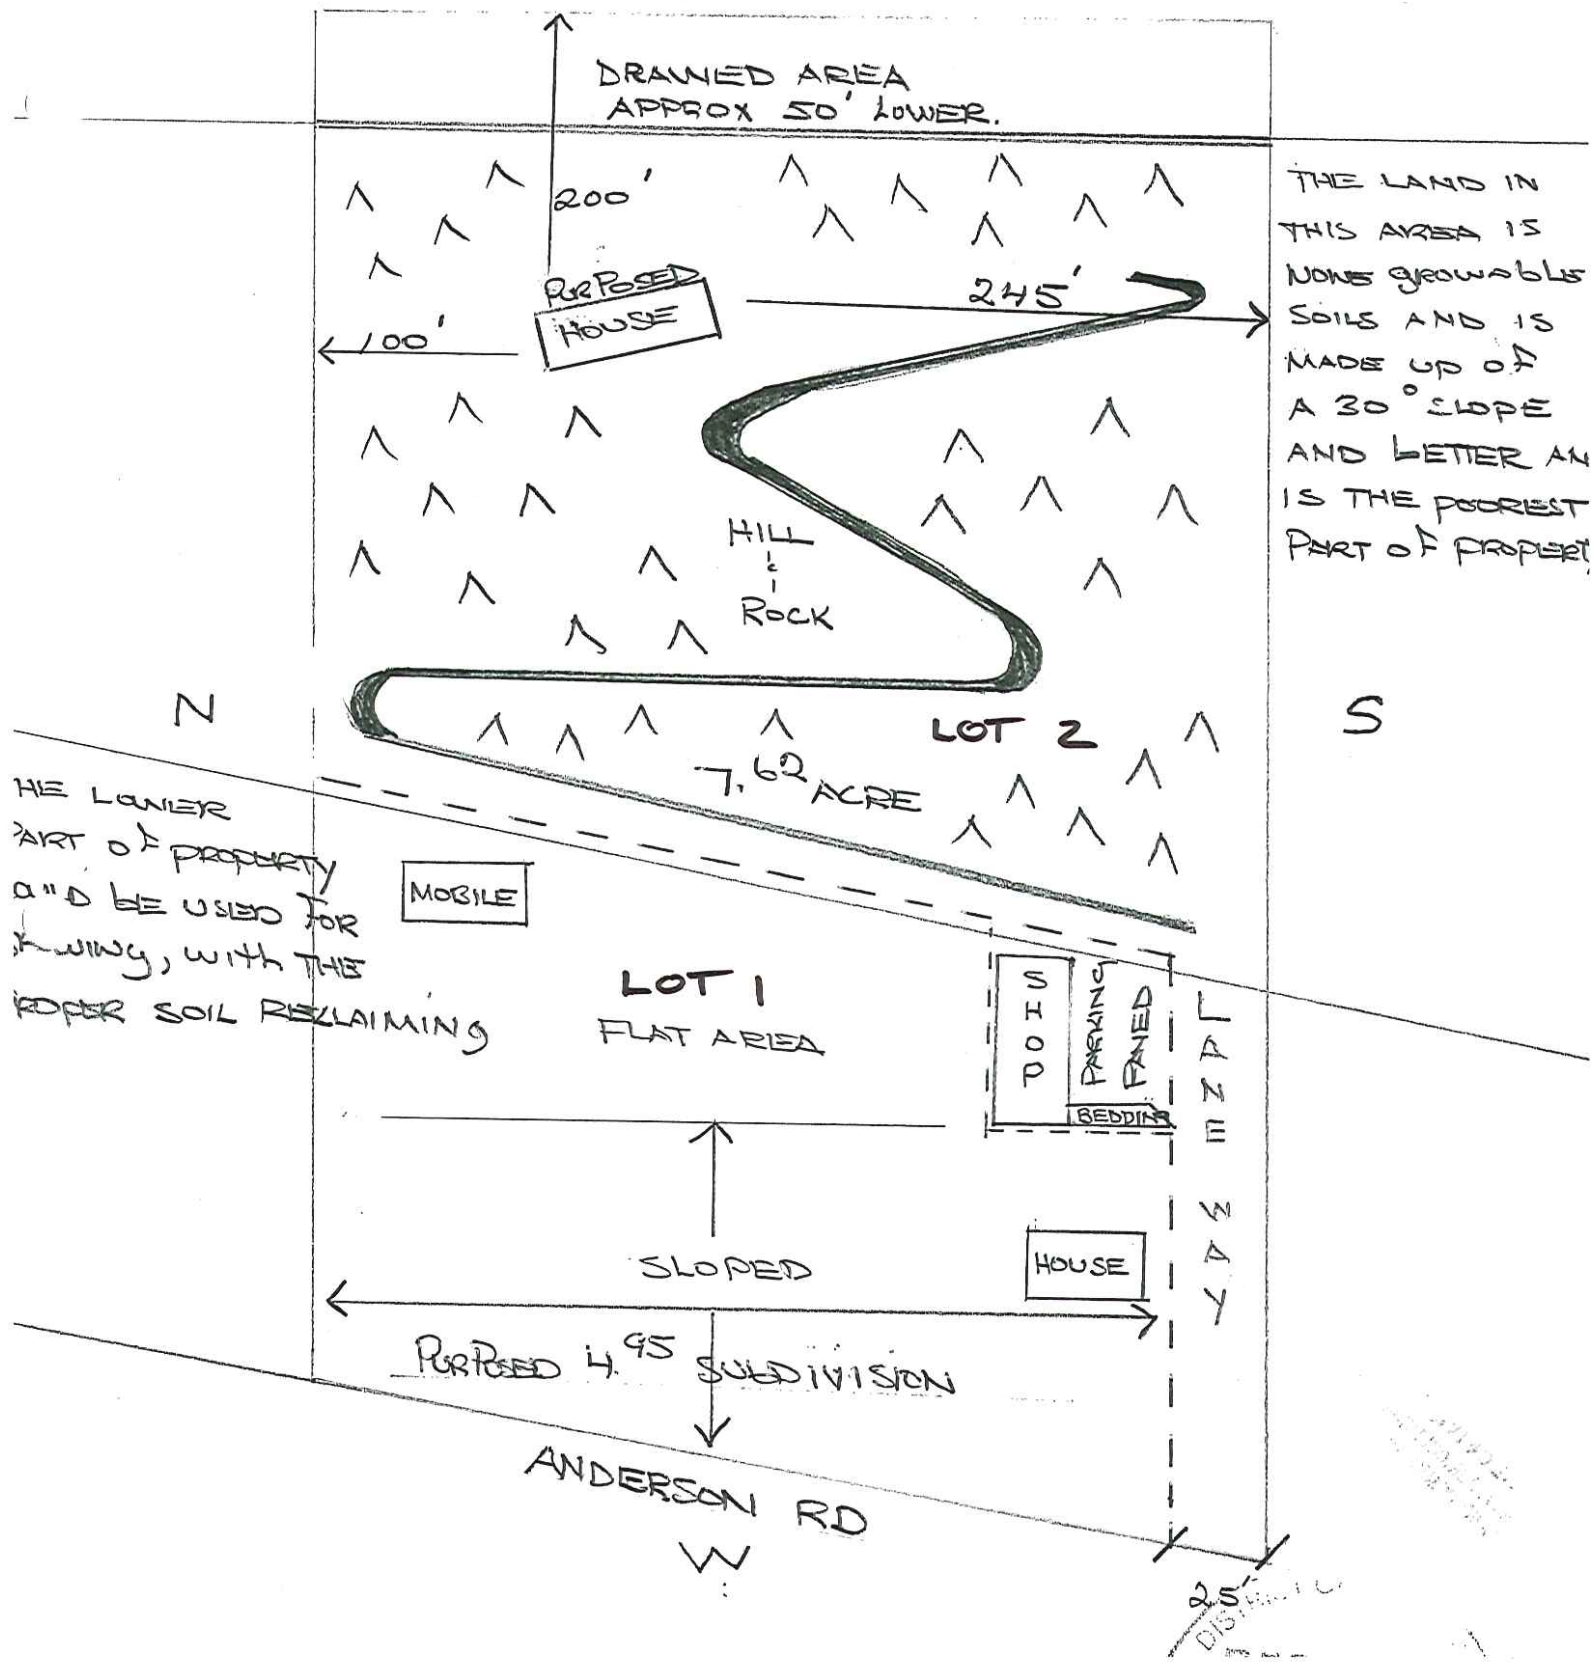 DRAWNED AREA
APPROX 50' LOWER.
200'
THE LAND IN
THIS AREA IS
NONE growable
SOILS AND IS
MADE UP OF
A 30° SLOPE
AND LETTER AN
IS THE POOREST
PART OF PROPERT
PURPOSED
HOUSE
245'
100'
HILL
&
ROCK
N
S
LOT 2
7.62 ACRE
HE LOWER
PART OF PROPERTY
BE USED FOR
with THE
SOIL RECLAIMING
MOBILE
LOT 1
FLAT AREA
SHOP
PARKING
BEDDING
LANE WAY
SLOPED
HOUSE
PURPOSED 4.95 SUBDIVISION
ANDERSON RD
W
25'